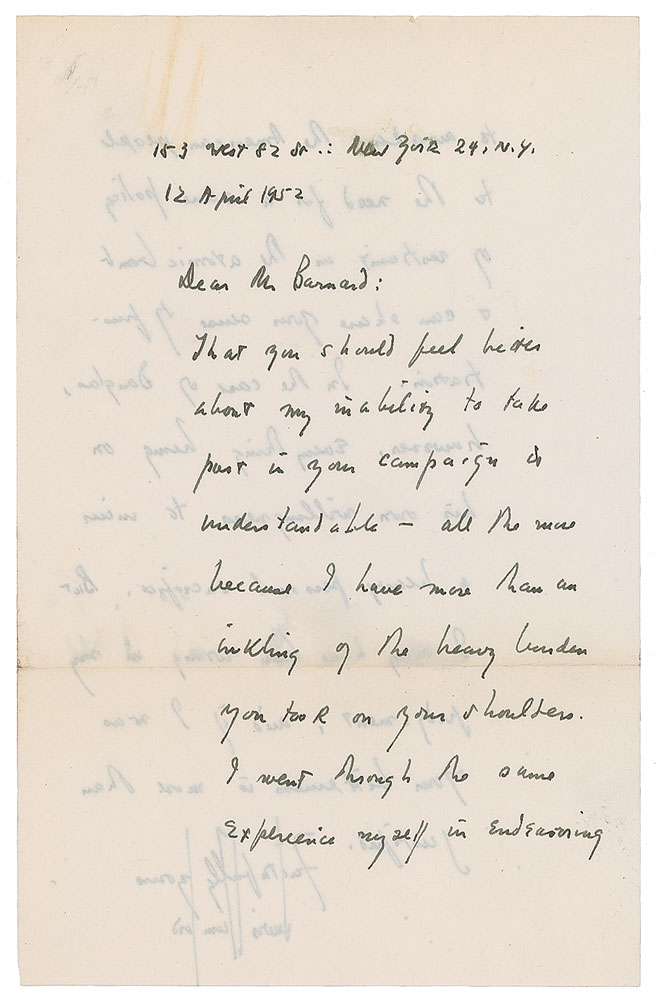 153 West 82 St.: New York 24, N.Y.
12 April 1952
Dear Mr Barnard:
That you should feel bitter
about my inability to take
part in your campaign is
understandable — all the more
because I have more than an
inkling of the heavy burden
you took on your shoulders.
I went through the same
experience myself in endeavoring